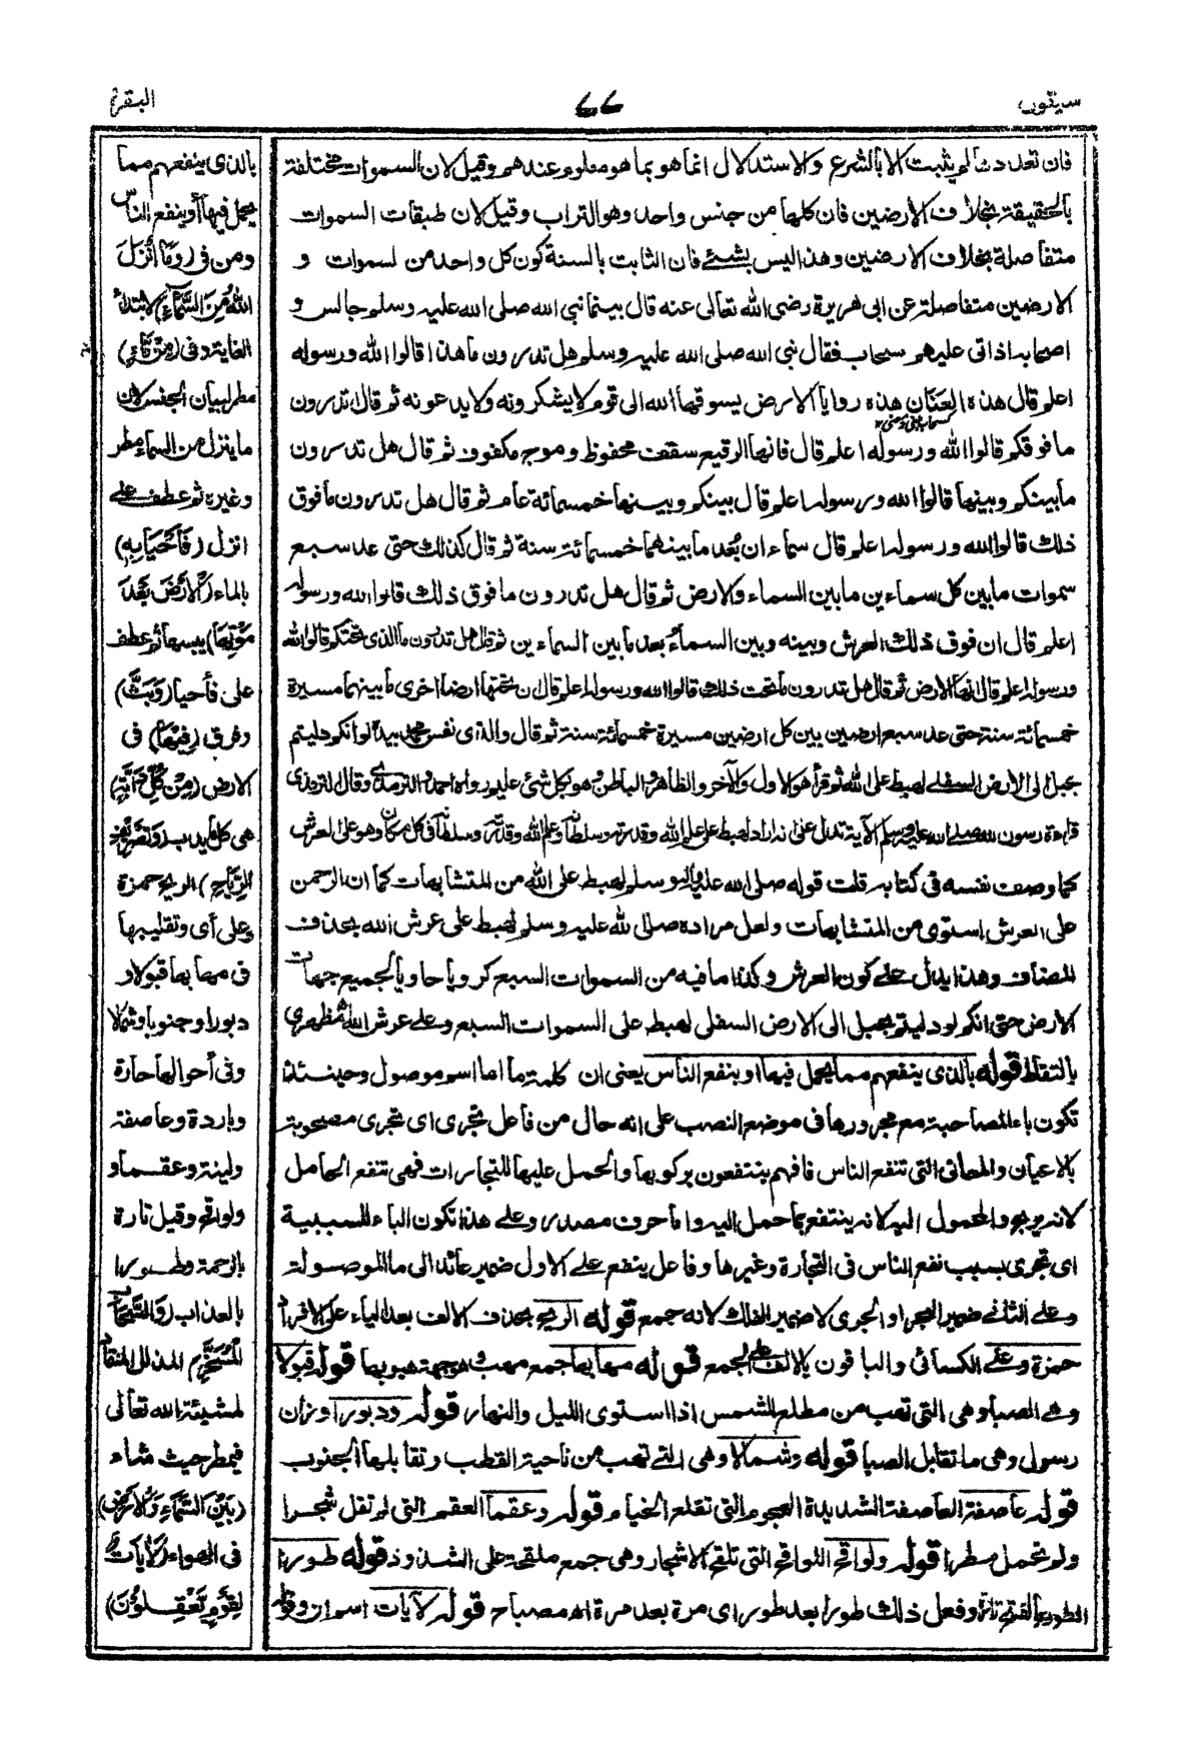 سيقول
٦٦
البقرة
فان تعددها لم يثبت الا بالشرع والاستدلال انما هو بما هو معلوم عندهم وقيل لان السموات مختلفة
بالحقيقة بخلاف الارضين فان كلها من جنس واحد وهو التراب وقيل لان طبقات السموات
متفاصلة بخلاف الارضين وهذا ليس بشئ فان الثابت بالسنة كون كل واحد من لسموات و
الارضين متفاصلة عن ابى هريرة رضى الله تعالى عنه قال بينما نبى الله صلى الله عليه وسلم جالس و
اصحابه اذ اتى عليهم سحاب فقال نبى الله صلى الله عليه وسلم هل تدرون ما هذا قالوا الله ورسوله
اعلم قال هذه العنان هذه روايا الارض يسوقها الله الى قوم لا يشكرونه ولا يدعونه ثم قال تدرون
ما فوقكم قالوا الله ورسوله اعلم قال فانها الرقيع سقف محفوظ وموج مكفوف ثم قال هل تدرون
ما بينكم وبينها قالوا الله ورسوله اعلم قال بينكم وبينها خمسمائة عام ثم قال هل تدرون ما فوق
ذلك قالوا الله ورسوله اعلم قال سماءان بعد ما بينهما خمسمائة سنة ثم قال كذلك حتى عد سبع
سموات ما بين كل سماءين ما بين السماء والارض ثم قال هل تدرون ما فوق ذلك قالوا الله ورسوله
اعلم قال ان فوق ذلك العرش وبينه وبين السماء بعد ما بين السماءين ثم قال هل تدرون ما الذى تحتكم قالوا الله
ورسوله اعلم قال انها الارض ثم قال هل تدرون ما تحت ذلك قالوا الله ورسوله اعلم قال ان تحتها ارضا اخرى ما بينهما مسيرة
خمسمائة سنة حتى عد سبع ارضين بين كل ارضين مسيرة خمسمائة سنة ثم قال والذى نفس محمد بيده لو انكم دليتم
بحبل الى الارض السفلى لهبط على الله ثم قرأ هو الاول والآخر والظاهر والباطن وهو بكل شئ عليم رواه احمد والترمذى وقال الترمذى
قراءة رسول الله صلى الله عليه وسلم الآية تدل على انه اراد لهبط على علم الله وقدرته وسلطانه وعلم الله وقدرته وسلطانه فى كل مكان وهو على العرش
كما وصف نفسه فى كتابه قلت قوله صلى الله عليه وسلم لهبط على الله من المتشابهات كما ان الرحمن
على العرش استوى من المتشابهات ولعل مراده صلى لله عليه وسلم لهبط على عرش الله بحذف
المضاف وهذا يدل على كون العرش وكذا ما فيه من السموات السبع كرويا حاويا لجميع جهات
الارض حتى انكم لو دليتم بحبل الى الارض السفلى لهبط على السموات السبع وعلى عرش الله مظهرى
بالتقاط قوله بالذى ينفعهم مما يحمل فيها او ينفع الناس يعنى ان كلمة ما اما اسم موصول وحينئذ
تكون باء المصاحبة مع مجرورها فى موضع النصب على انه حال من فاعل تجرى اى تجرى مصحوبة
بالاعيان والمعانى التى تنفع الناس فانهم ينتفعون بركوبها والحمل عليها للتجارات فهى تنفع الحامل
لانه يربح والمحمول اليه لانه ينتفع بما حمل اليه واما حرف مصدر وعلى هذا تكون الباء للسببية
اى تجرى بسبب نفع الناس فى التجارة وغيرها وفاعل ينفع على الاول ضمير عائد الى ما الموصولة
وعلى الثانى ضمير البحر او الجرى لا ضمير الفلك لانه جمع قوله الريح بحذف الالف بعد الياء على الافراد
حمزة وعلى الكسائى والباقون بالالف على الجمع قوله مهابها جمع مهب وهو جهة هبوبها قوله قبولا
وهى الصبا وهى التى تهب من مطلع الشمس اذا استوى الليل والنهار قوله ودبورا وزان
رسول وهى ما تقابل الصبا قوله وشمالا وهى التى تهب من ناحية القطب وتقابلها الجنوب
قوله عاصفة العاصفة الشديدة الهجوم التى تقلع الخيام قوله وعقما العقم التى لم تقل شجرا
ولم تحمل مطرا قوله ولواقح اللواقح التى تلقح الاشجار وهى جمع ملقحة على الشذوذ قوله طورا
الطور بالفتح تارة وفعل ذلك طورا بعد طور اى مرة بعد مرة اه مصباح قوله لآيات اسم ان وقوله
بالذى ينفعهم مما
يحمل فيها او ينفع الناس
ومن فى (وما أنزل
الله من السماء) لابتداء
الغاية وفى (من ماء)
مطر لبيان الجنس لان
ما ينزل من السماء مطر
وغيره ثم عطف على
انزل (فأحيا به)
بالماء (الارض بعد
موتها) يبسها ثم عطف
على فأحيا (وبث)
وفرق (فيها) فى
الارض (من كل دابة)
هى كل ما يدب (وتصريف
الرياح) الريح حمزة
وعلى أى وتقليبها
فى مهابها قبولا و
دبورا وجنوبا وشمالا
وفى أحوالها حارة
وباردة وعاصفة
ولينة وعقما و
ولواقح وقيل تارة
بالرحمة وطورا
بالعذاب (والسحاب
المسخر) المذلل المنقاد
لمشيئة الله تعالى
فيمطر حيث شاء
(بين السماء والارض)
فى الهواء (لآيات
لقوم يعقلون)